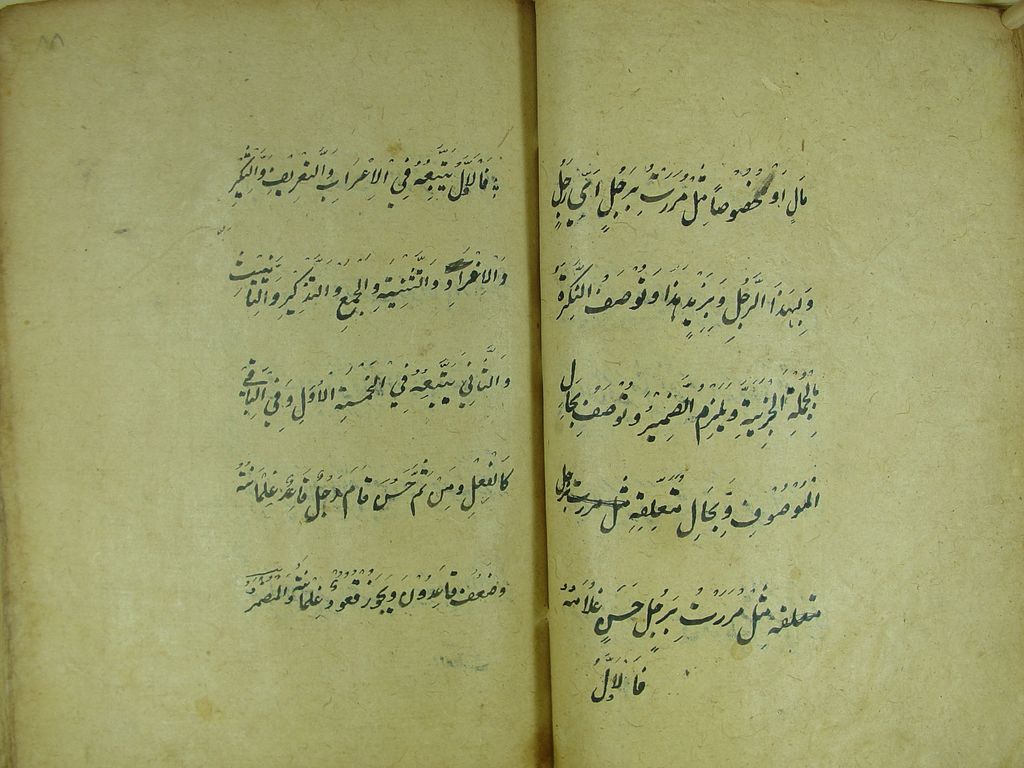 مَالٍ اَوْ خُصُوصاً مِثْلُ مَرَرْتُ بِرَجُلٍ اَيِّ رَجُلٍ
وَبِهٰذَا الرَّجُلِ وَبِزَيْدٍ هٰذَا وَتُوصَفُ النَّكِرَةُ
بِالْجُمْلَةِ الْخَبَرِيَّةِ وَيَلْزَمُ الضَّمِيْرُ وَتُوصَفُ بِحَالِ
الْمَوْصُوْفِ وَبِحَالِ مُتَعَلِّقِهِ مِثْلُ مررت برجل
متعلقه مِثْلُ مَرَرْتُ بِرَجُلٍ حَسَنٍ غُلَامُهُ
فَالْاَوَّلُ
فَالْاَوَّلُ يَتْبَعُهُ فِي الْاِعْرَابِ وَالتَّعْرِيْفِ وَالتَّنْكِيْرِ
وَالْاِفْرَادِ وَالتَّثْنِيَةِ وَالْجَمْعِ وَالتَّذْكِيْرِ وَالتَّأْنِيْثِ
وَالثَّانِيْ يَتْبَعُهُ فِي الْخَمْسَةِ الْاُوَلِ وَفِي الْبَاقِيْ
كَالْفِعْلِ وَمِنْ ثَمَّ حَسُنَ قَامَ رَجُلٌ قَاعِدٌ غِلْمَانُهُ
وَضَعُفَ قَاعِدُوْنَ وَيَجُوْزُ قُعُوْدٌ غِلْمَانُهُ وَالْمُضْمَرُ